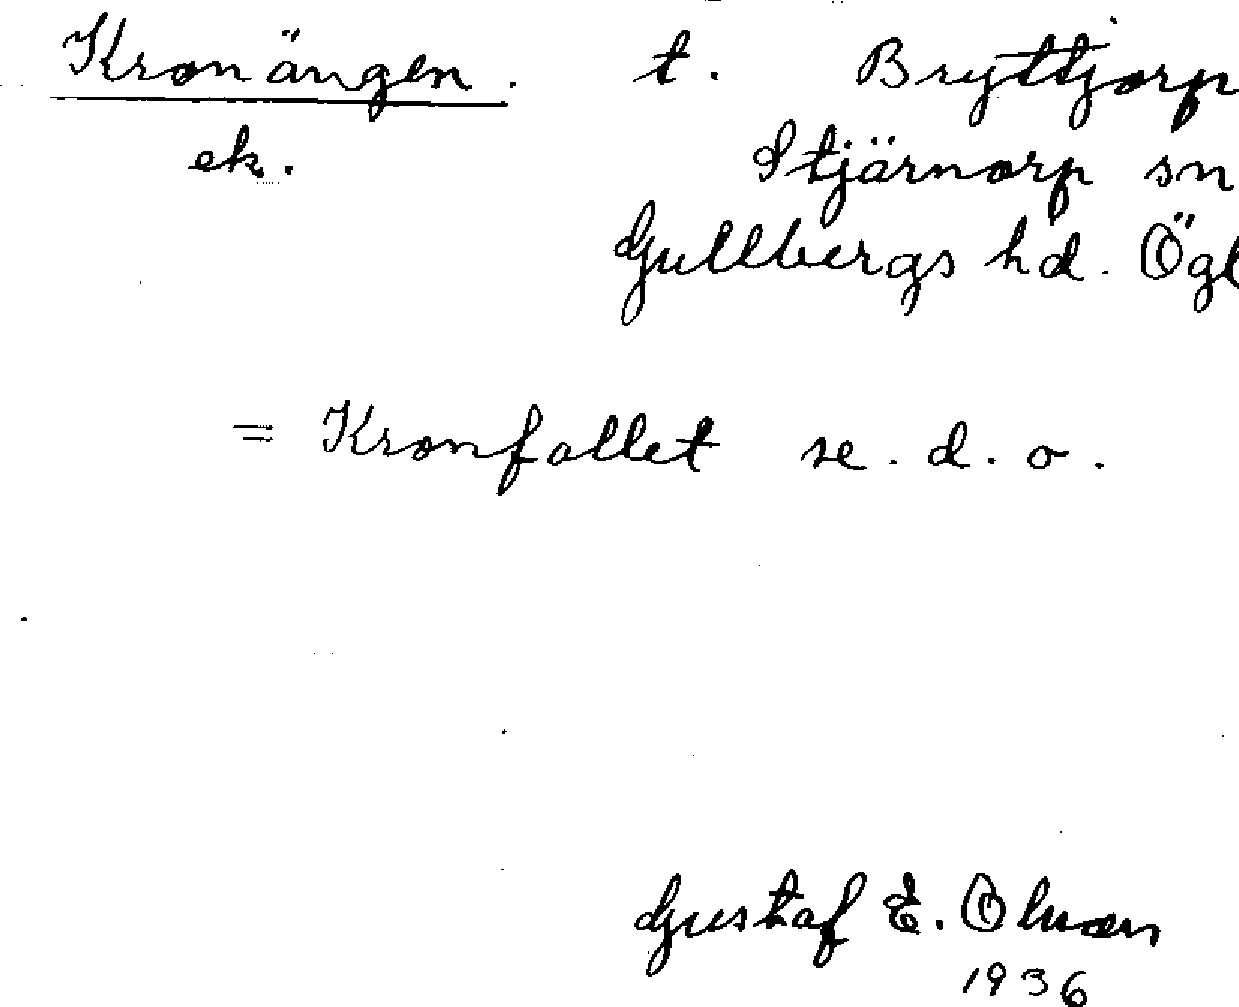 Kronängen. t. Bryttjorp
ek. Stjärnorp sn
Gullbergs hd. Ögl
= Kronfallet se. d. o.
Gustaf E. Olson
1936